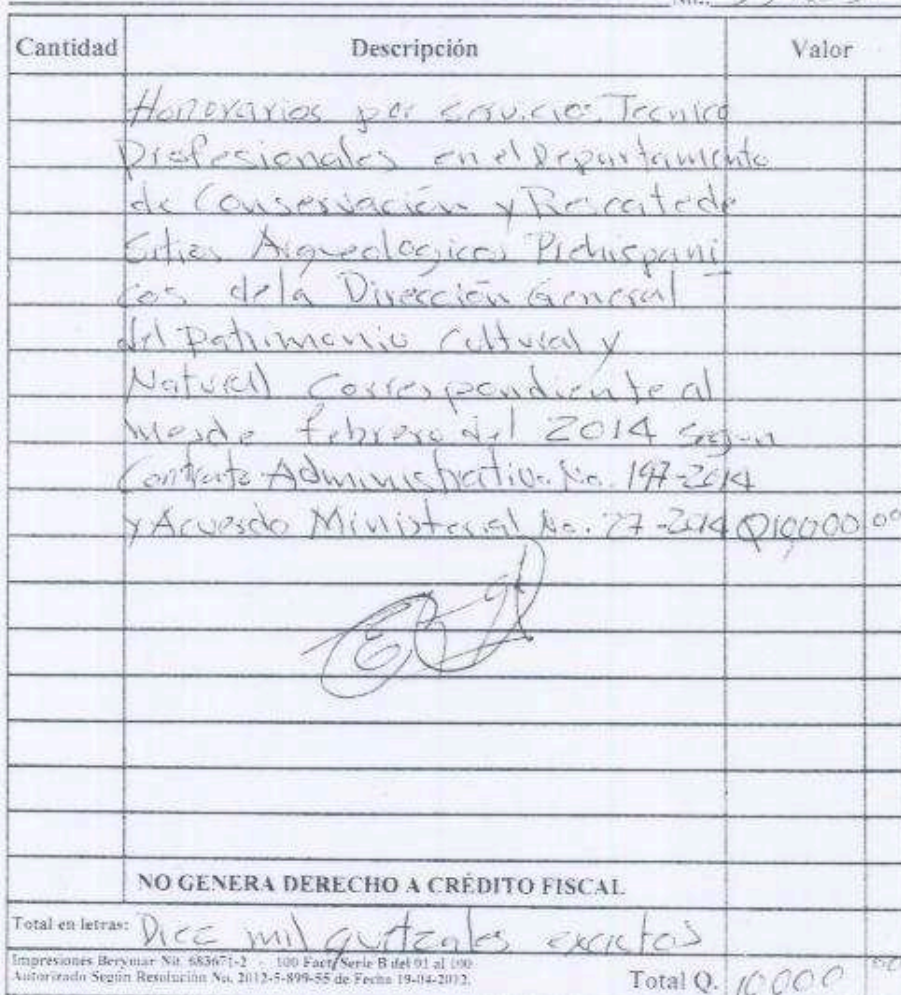 Nit.:
Cantidad Descripción Valor
Honorarios por servicios Tecnico
Profesionales en el Departamento
de Conservación y Rescate de
Sitios Arqueologicos Prehispani
cos de la Dirección General
del Patrimonio Cultural y
Natural Correspondiente al
mes de febrero del 2014 segun
Contrato Administrativo No. 197-2014
y Acuerdo Ministerial No. 27-2014 Q10,000 00
NO GENERA DERECHO A CRÉDITO FISCAL
Total en letras: Diez mil quetzales exactos
Impresiones Berymar Nit. 683671-2 100 Fact/Serie B del 01 al 100
Autorizado Según Resolución No. 2012-5-899-55 de Fecha 19-04-2012.
Total Q. 10,000 00